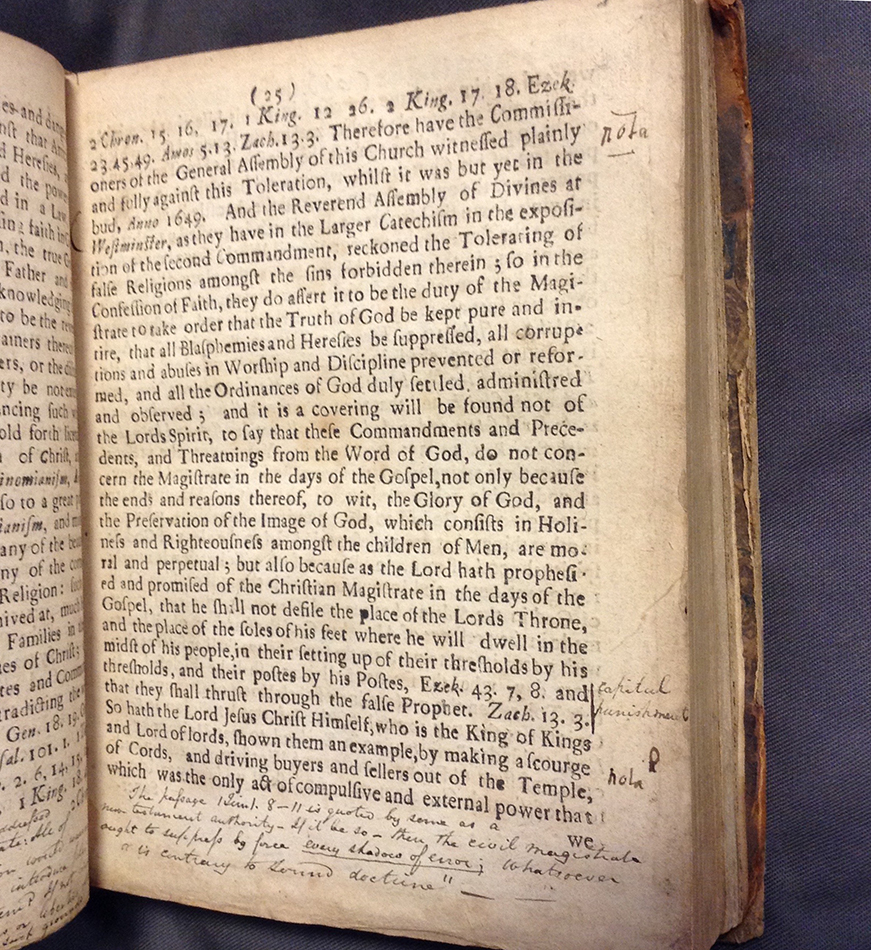 es and dang
nſt that
d Hereſies,
d the powe
d in a Law
ing faith in
, the true G
Father and
knowledging
to be the
ainers there
ers, or the
ty be not
ncing ſuch
old forth
of Chriſt,
inomianiſm,
ſo to a great
ianiſm, and
any of the
ny of the
Religion:
nived at, much
Families in
es of Chriſt;
tes and Comm
tradicting the
Gen. 18. 19.
ſal. 101. 1.
2. 6, 14, 15,
1 King. 18.
(25)
2 Chron. 15. 16. 17. 1 King. 12 26. 2 King. 17. 18. Ezek.
23.45.49. Amos 5.13. Zach.13.3. Therefore have the Commiſſi-
oners of the General Aſſembly of this Church witneſſed plainly
and fully againſt this Toleration, whilſt it was but yet in the
bud, Anno 1649. And the Reverend Aſſembly of Divines at
Weſtminſter, as they have in the Larger Catechiſm in the expoſi-
tion of the ſecond Commandment, reckoned the Tolerating of
falſe Religions amongſt the ſins forbidden therein ; ſo in the
Confeſſion of Faith, they do aſſert it to be the duty of the Magi-
ſtrate to take order that the Truth of God be kept pure and in-
tire, that all Blaſphemies and Hereſies be ſuppreſſed, all corrup-
tions and abuſes in Worſhip and Diſcipline prevented or refor-
med, and all the Ordinances of God duly ſettled, adminiſtred
and obſerved ; and it is a covering will be found not of
the Lords Spirit, to ſay that theſe Commandments and Prece-
dents, and Threatnings from the Word of God, do not con-
cern the Magiſtrate in the days of the Goſpel, not only becauſe
the ends and reaſons thereof, to wit, the Glory of God, and
the Preſervation of the Image of God, which conſiſts in Holi-
neſs and Righteouſneſs amongſt the children of Men, are mo-
ral and perpetual ; but alſo becauſe as the Lord hath propheſi-
ed and promiſed of the Chriſtian Magiſtrate in the days of the
Goſpel, that he ſhall not defile the place of the Lords Throne,
and the place of the ſoles of his feet where he will dwell in the
midſt of his people, in their ſetting up of their threſholds by his
threſholds, and their poſtes by his Poſtes, Ezek. 43. 7, 8. and
that they ſhall thruſt through the falſe Prophet. Zach. 13. 3.
So hath the Lord Jeſus Chriſt Himſelf, who is the King of Kings
and Lord of lords, ſhown them an example, by making a ſcourge
of Cords, and driving buyers and ſellers out of the Temple,
which was the only act of compulſive and external power that
we
nota
capital
punishment
nota
The passage 1 Tim 1. 8-11 is quoted by some as a
new testament authority - If it be so - then the civil magistrate
ought to suppress by force every shadow of error; Whatsoever
is contrary to sound doctrine"